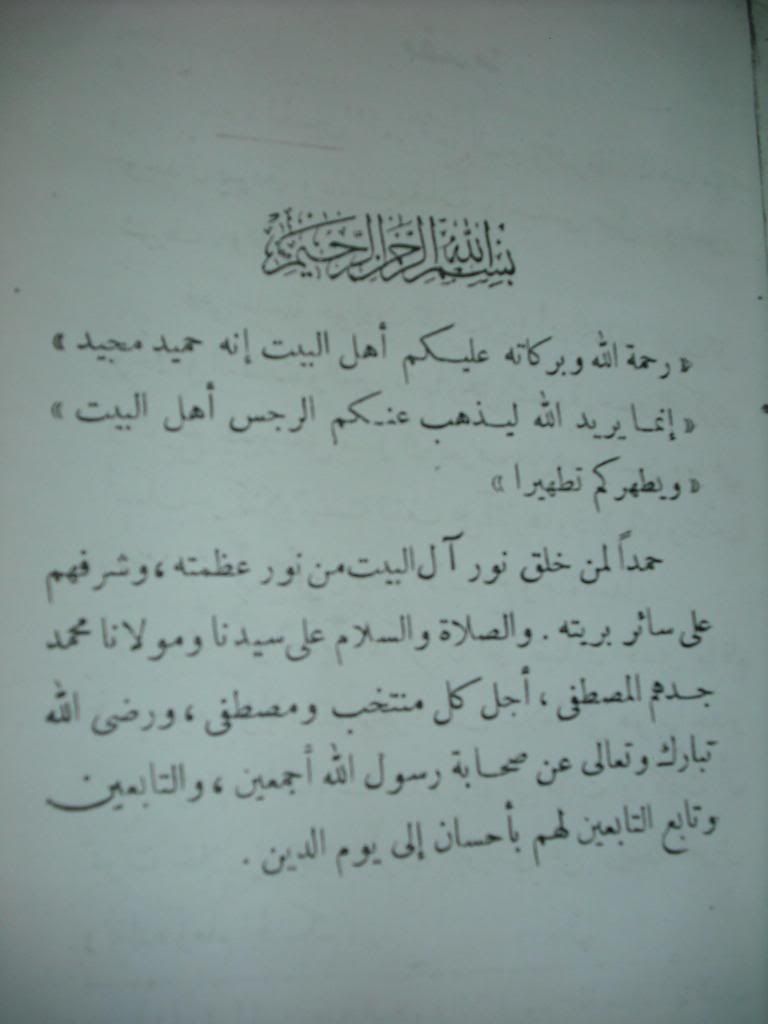 بسم الله الرحمن الرحيم
« رحمة الله وبركاته عليكم أهل البيت إنه حميد مجيد »
« إنما يريد الله ليذهب عنكم الرجس أهل البيت »
« ويطهركم تطهيرا »
حمداً لمن خلق نور آل البيت من نور عظمته ، وشرفهم
على سائر بريته . والصلاة والسلام على سيدنا ومولانا محمد
جدهم المصطفى ، أجل كل منتخب ومصطفى ، ورضى الله
تبارك وتعالى عن صحابة رسول الله أجمعين ، والتابعين
وتابع التابعين لهم بأحسان إلى يوم الدين .